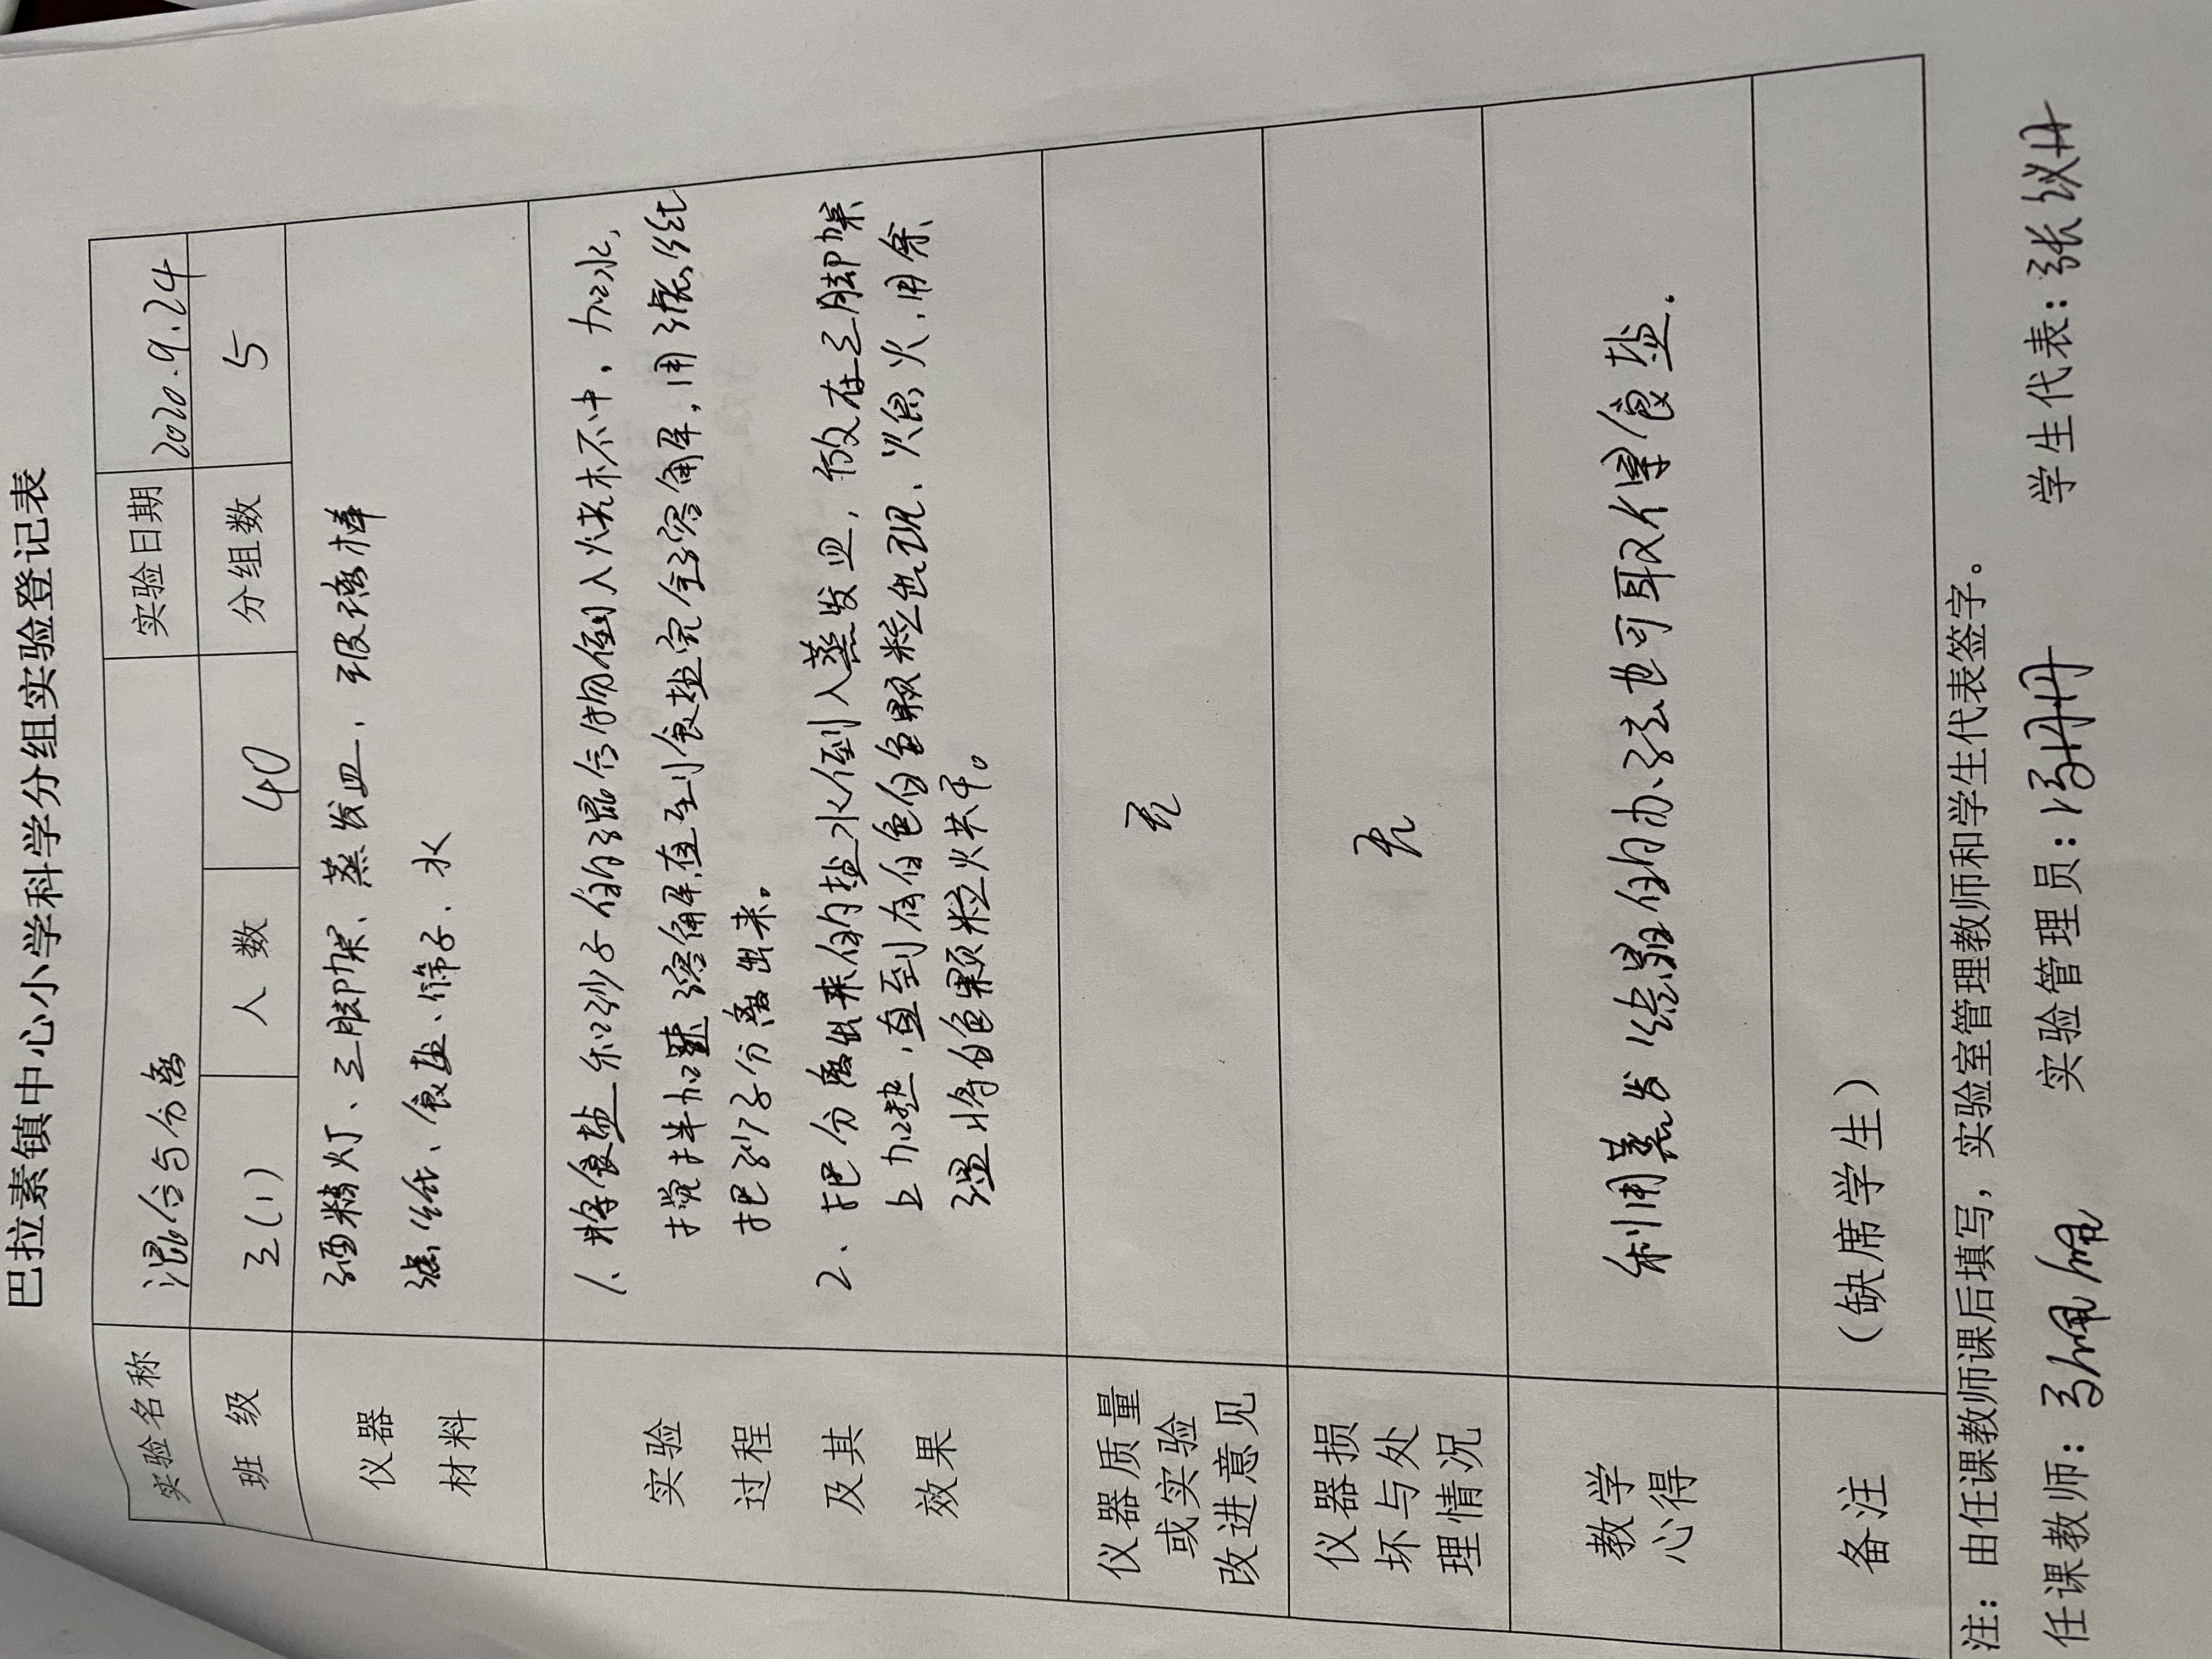 巴拉素镇中心小学科学分组实验登记表
实验名称 混合与分离 实验日期 2020.9.24
班 级 三(1) 人 数 40 分组数 5
仪器
材料
酒精灯、三脚架、蒸发皿、玻璃棒
滤纸、食盐、筛子、水
实验
过程
及其
效果
1、将食盐和沙子的混合物倒入烧杯中,加水,
搅拌加速溶解,直到食盐完全溶解,用滤纸
把沙子分离出来。
2、把分离出来的盐水倒入蒸发皿,放在三脚架
上加热,直到有白色的颗粒出现、熄火,用余
温将白色颗粒烘干。
仪器质量
或实验
改进意见
无
仪器损
坏与处
理情况
无
教学
心得
利用蒸发结晶的办法也可取得食盐.
备注
(缺席学生)
注:由任课教师课后填写,实验室管理教师和学生代表签字。
任课教师: 实验管理员:冯丹 学生代表:张议丹